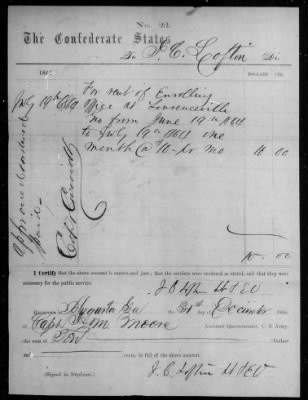 No. 22.
The Confederate States
To J. C. Loftin Dr.
DOLLARS
186
July 19th 1864
For rent of Enrolling
Office at Lawrenceville
from June 19th 1864
to July 19th 1864 one
month @ 10 pr mo 10 00
10.00
I Certify that the above account is correct and just; that the services were rendered as stated, and that they were
necessary for the public service.
Augusta Ga 31st December 186
Capt Moore Assistant Quartermaster, C. S. Army,
the sum of Ten
and cents, in full of the above account.
(Signed in Duplicate.) J. C. Loftin